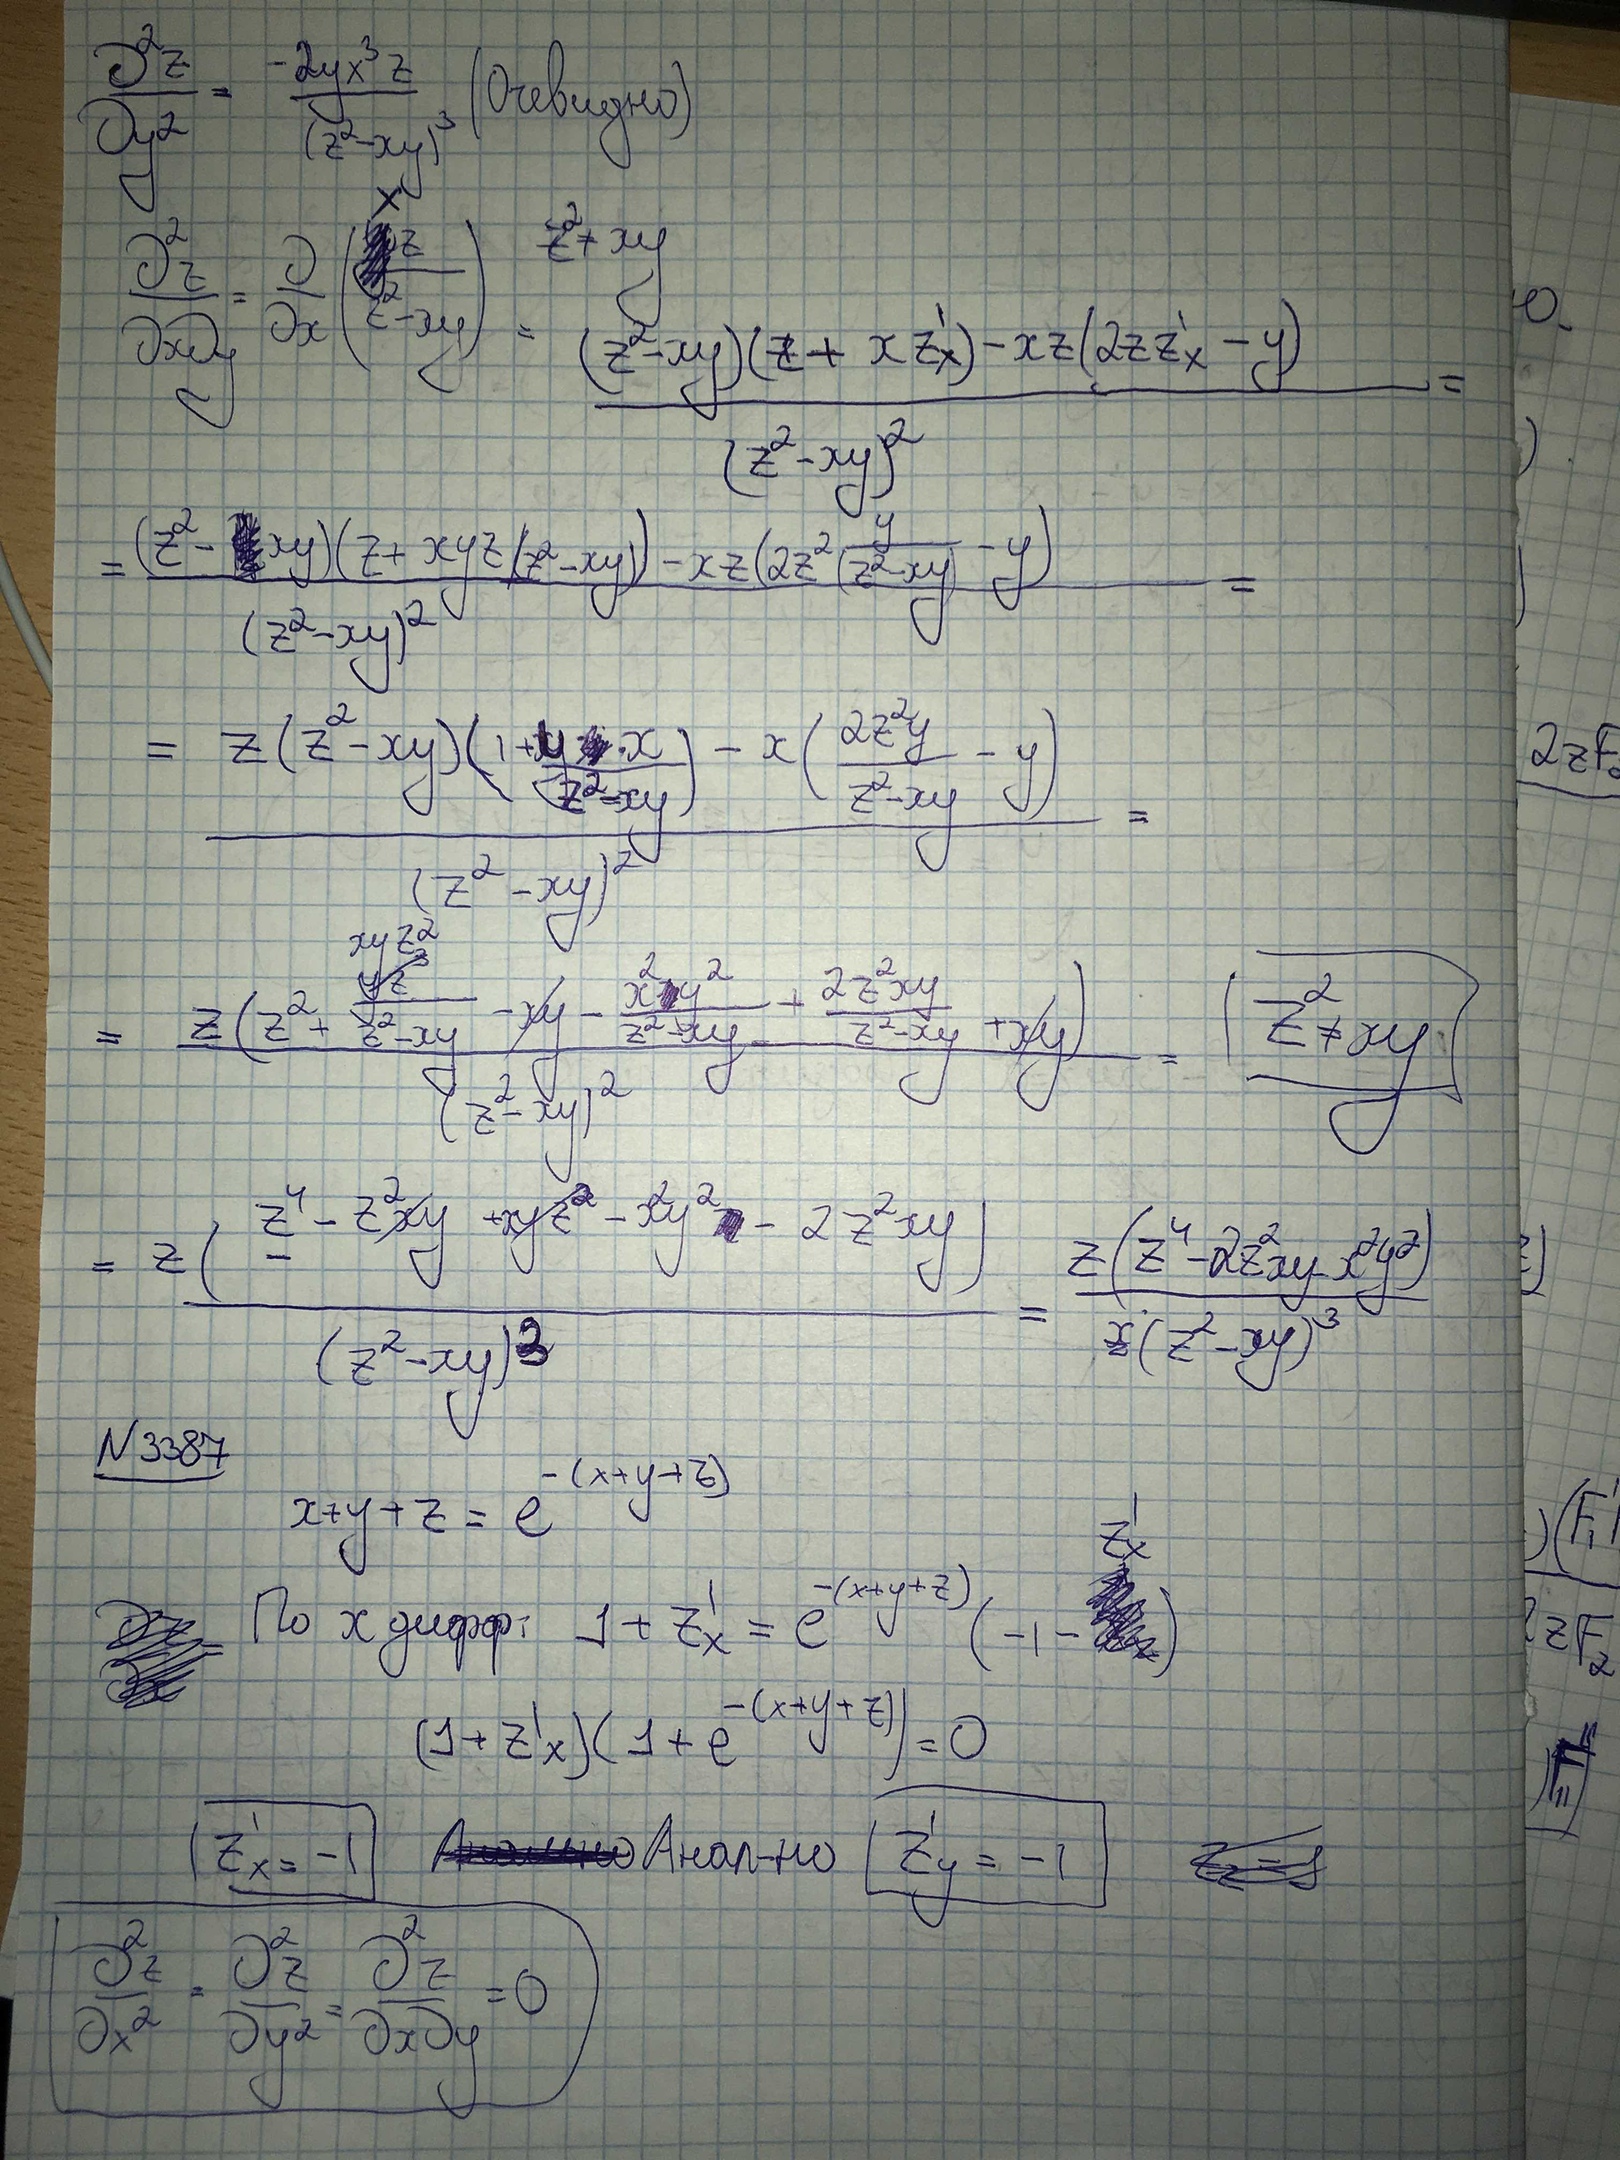 ∂²z/∂y² = -2yx³z/(z²-xy)³ (Очевидно)
x
∂²z/∂x∂y = ∂/∂x (z/(z²-xy)) = ((z²-xy)(z + xz'x) - xz(2zz'x - y))/(z²-xy)² =
z²+xy
= ((z²-xy)(z+xyz/(z²-xy)) - xz(2z² y/(z²-xy) - y))/(z²-xy)² =
= (z(z²-xy)(1+y·x/(z²-xy)) - x(2z²y/(z²-xy) - y))/(z²-xy)² =
= z(z² + xyz²/(z²-xy) - xy - x²y²/(z²-xy) - + 2z²xy/(z²-xy) + xy)/(z²-xy)² = z²≠xy
= z(z⁴ - z²xy + xyz² - x²y² - 2z²xy)/(z²-xy)³ = z(z⁴-2z²xy-x²y²)/(z²-xy)³
N3387
x+y+z = e^-(x+y+z)
По x дифф: 1 + z'x = e^-(x+y+z) (-1 - z'x)
(1+z'x)(1+e^-(x+y+z)) = 0
z'x = -1 Анал-но z'y = -1
∂²z/∂x² = ∂²z/∂y² = ∂²z/∂x∂y = 0
2zF₂
)(F₁'
2zF₂